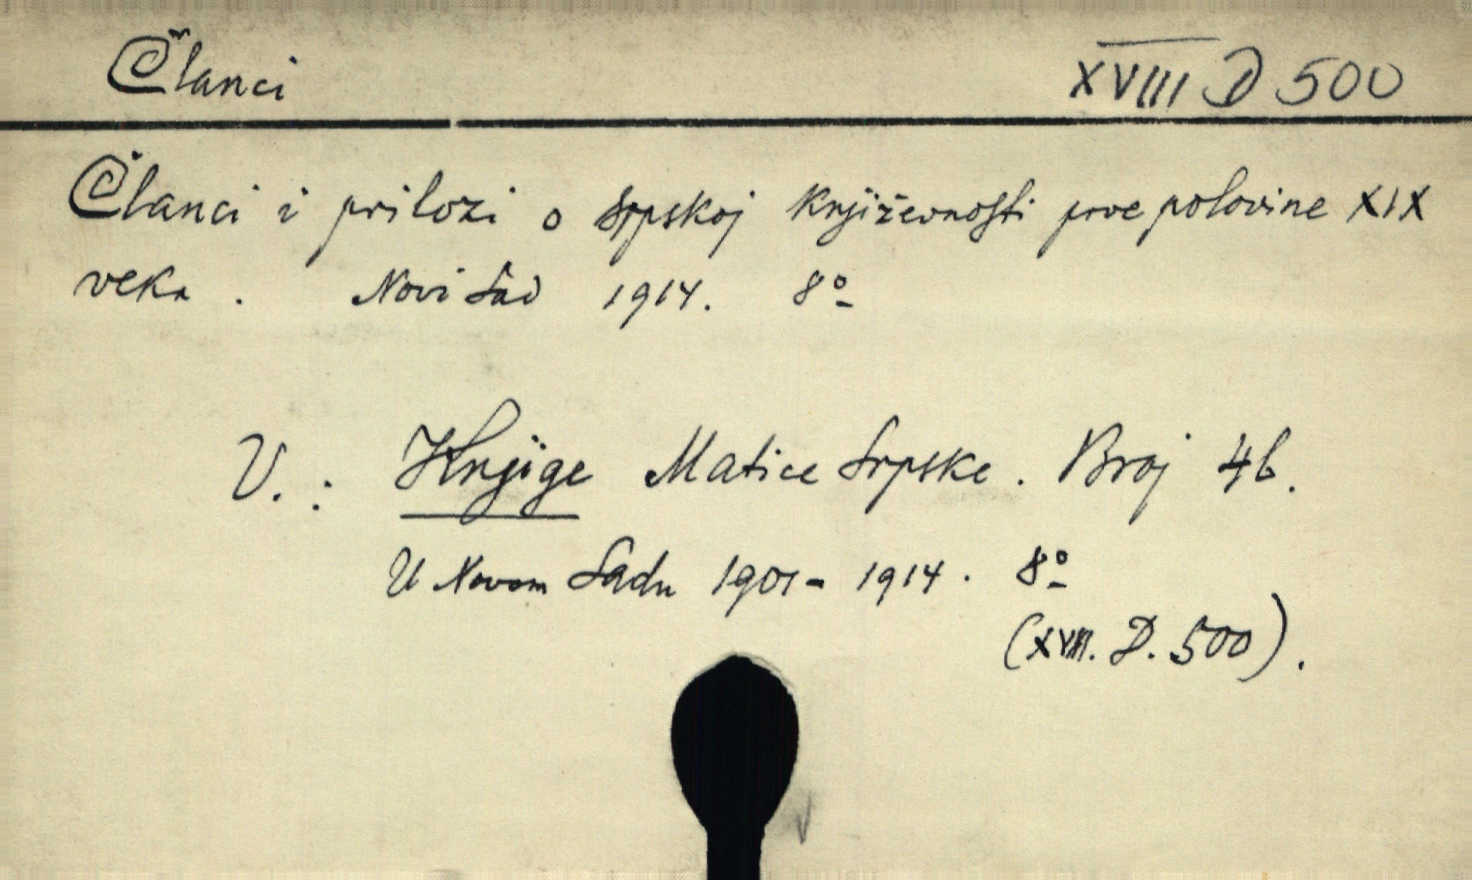 Članci XVIII D 500
Članci i prilozi o srpskoj književnosti prve polovine XIX
veka. Novi Sad 1914. 8º
V.: Knjige Matice Srpske. Broj 46.
U Novom Sadu 1901-1914. 8º
(XVIII. D. 500).